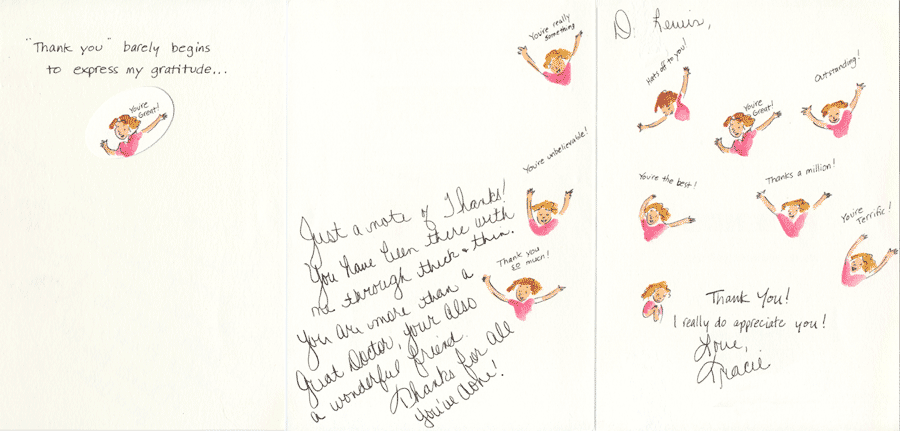 "Thank you" barely begins
to express my gratitude...
You're
Great!
You're really
something
You're unbelievable!
Just a note of Thanks!
You have been there with
me through thick + thin.
You are more than a
Great Doctor, your also
a wonderful friend.
Thanks for all
you've done!
Thank you
so much!
D. Lewis,
Hats off to you!
You're
Great!
Outstanding!
You're the best!
Thanks a million!
You're
Terrific!
Thank You!
I really do appreciate you!
Love,
Gracie